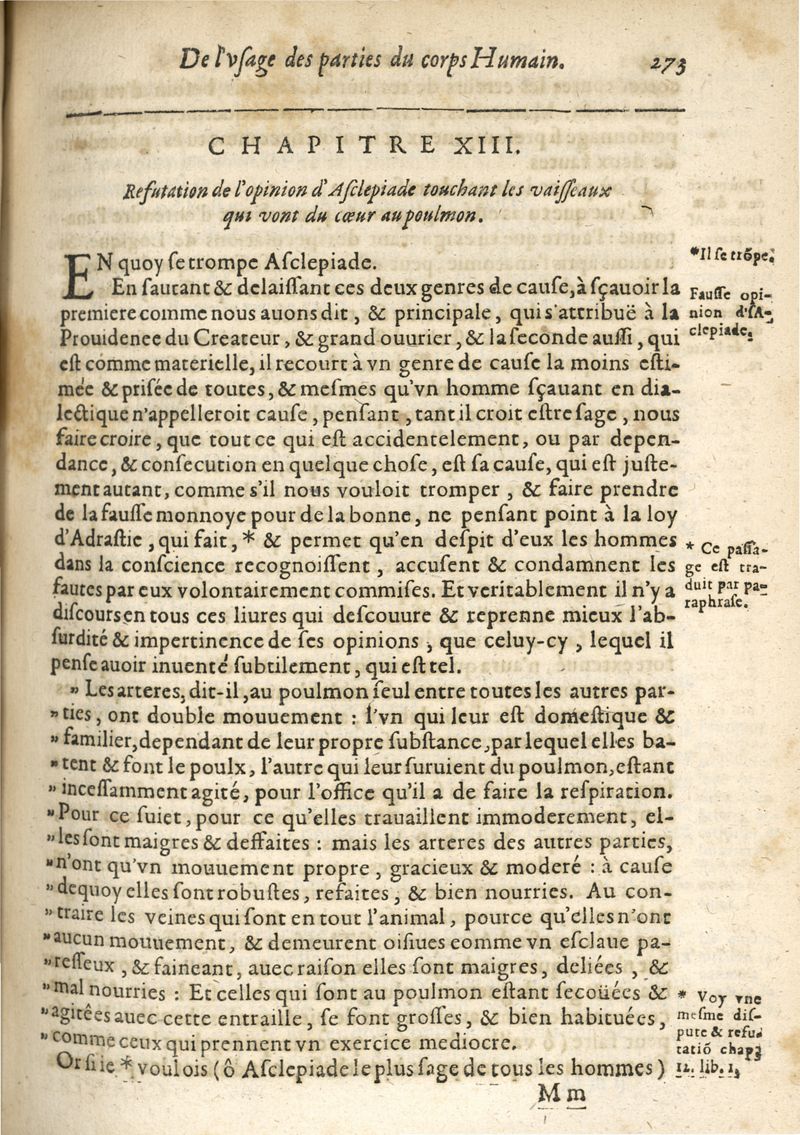 De l'vſage des parties du corps Humain. 273
CHAPITRE XIII.
Refutation de l'opinion d'Aſclepiade touchant les vaiſſeaux
qui vont du cœur au poulmon.
EN quoy ſe trompe Aſclepiade.
*Il ſe trõpe.
En ſautant & delaiſſant ces deux genres de cauſe, à ſçauoir la
premiere comme nous auons dit, & principale, qui s'attribuë à la
Prouidence du Createur, & grand ouurier, & la ſeconde auſſi, qui
Fauſſe opi-
nion d'Aſ-
clepiade.
eſt comme materielle, il recourt à vn genre de cauſe la moins eſti-
mée & priſée de toutes, & meſmes qu'vn homme ſçauant en dia-
lectique n'appelleroit cauſe, penſant, tant il croit eſtre ſage, nous
faire croire, que tout ce qui eſt accidentelement, ou par depen-
dance, & conſecution en quelque choſe, eſt ſa cauſe, qui eſt juſte-
ment autant, comme s'il nous vouloit tromper, & faire prendre
de la fauſſe monnoye pour de la bonne, ne penſant point à la loy
d'Adraſtie, qui fait, * & permet qu'en deſpit d'eux les hommes
dans la conſcience recognoiſſent, accuſent & condamnent les
fautes par eux volontairement commiſes. Et veritablement il n'y a
* Ce paſſa-
ge eſt tra-
duit par pa-
raphraſe.
diſcours en tous ces liures qui deſcouure & reprenne mieux l'ab-
ſurdité & impertinence de ſes opinions, que celuy-cy, lequel il
penſe auoir inuenté ſubtilement, qui eſt tel.
» Les arteres, dit-il, au poulmon ſeul entre toutes les autres par-
» ties, ont double mouuement : l'vn qui leur eſt domeſtique &
» familier, dependant de leur propre ſubſtance, par lequel elles ba-
» tent & font le poulx, l'autre qui leur ſuruient du poulmon, eſtant
» inceſſamment agité, pour l'office qu'il a de faire la reſpiration.
» Pour ce ſuiet, pour ce qu'elles trauaillent immoderement, el-
» les ſont maigres & deffaites : mais les arteres des autres parties,
» n'ont qu'vn mouuement propre, gracieux & moderé : à cauſe
» dequoy elles ſont robuſtes, refaites, & bien nourries. Au con-
» traire les veines qui ſont en tout l'animal, pource qu'elles n'ont
» aucun mouuement, & demeurent oiſiues comme vn eſclaue pa-
» reſſeux, & faineant, auec raiſon elles ſont maigres, deliées, &
» mal nourries : Et celles qui ſont au poulmon eſtant ſecoüées &
» agitêes auec cette entraille, ſe font groſſes, & bien habituées,
» comme ceux qui prennent vn exercice mediocre.
Or ſi ie * voulois (ô Aſclepiade le plus ſage de tous les hommes)
* Voy vne
meſme diſ-
pute & refu-
tatiõ chap.
11. lib. 1.
Mm